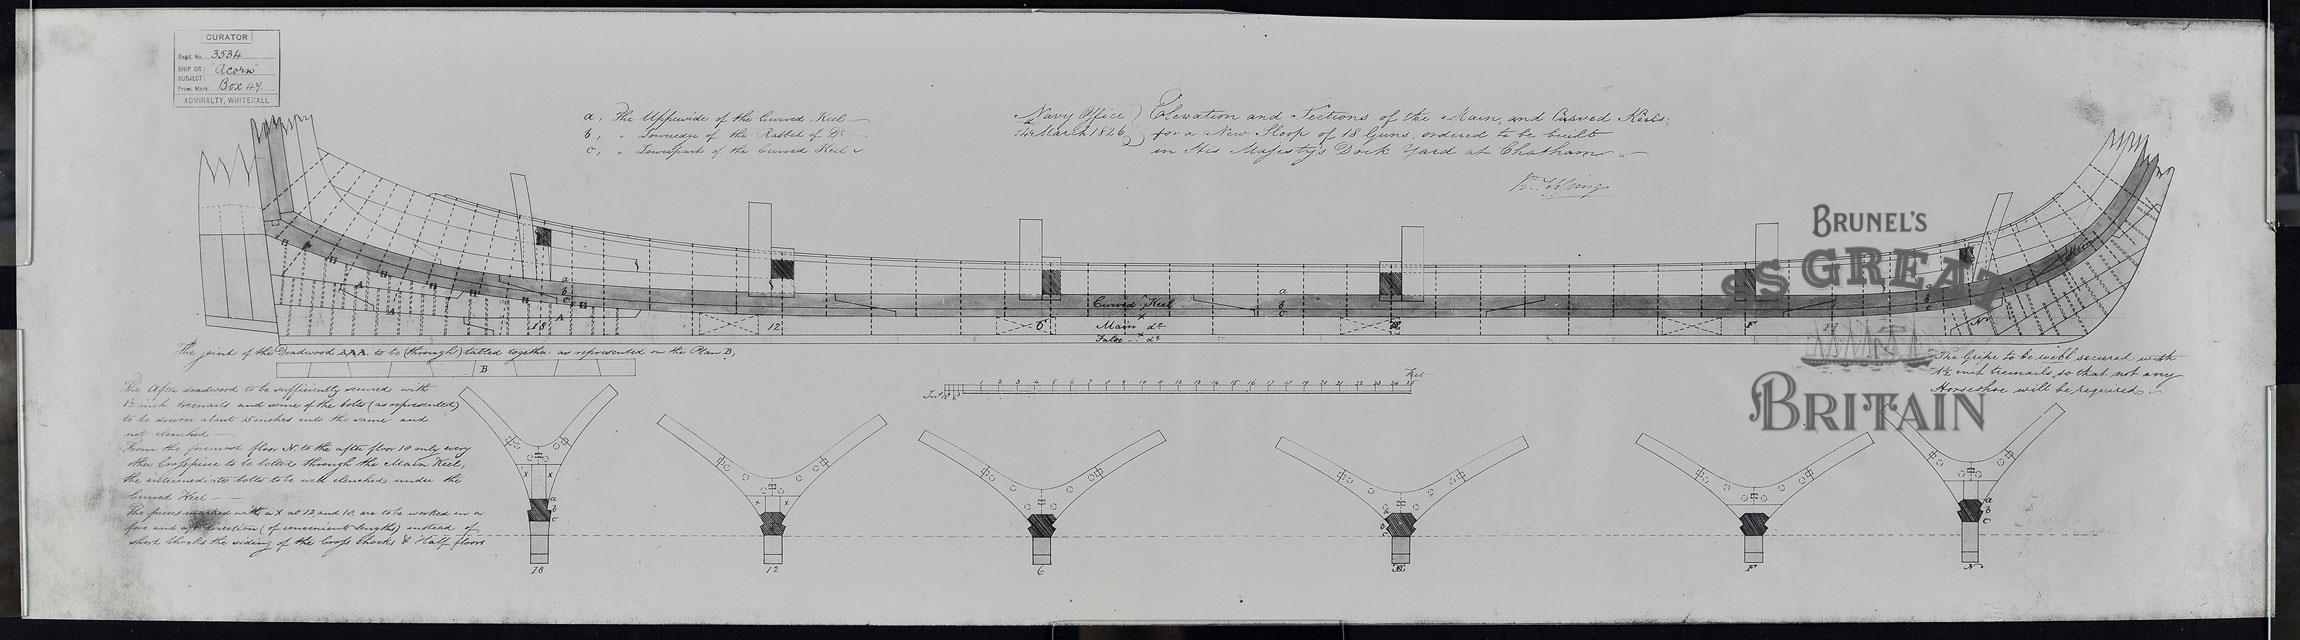 CURATOR
Regd. No. 3534
SHIP OR SUBJECT "Acorn"
Press Mark Box 47
ADMIRALTY, WHITEHALL
a, The Upperside of the Curved Keel
b, " Loweredge of the Rabbet of Do
c, " Lowerpart of the Curved Keel
Navy Office
14 March 1826
Elevation and Sections of the Main, and Curved Keels,
for a New Sloop of 18 Guns, ordered to be built
in His Majesty's Dock Yard at Chatham
BRUNEL'S
SS GREAT
BRITAIN
a
b
c
A
A
A
18
12
6
Curved Keel
Main do
False do
a
b
c
F
a
b
c
N
The joint of the Deadwood A.A.A. to be (through) tabled together as represented on the Plan B,
B
The After deadwood to be sufficiently secured with
1½ inch treenails and some of the bolts (as represented)
to be driven about 15 inches into the same and
not clenched
From the foremost floor N. to the after floor 18 only every
other Crosspiece to be bolted through the Main Keel,
the intermediate bolts to be well clenched under the
Curved Keel
The pieces marked with a X at 12 and 18, are to be worked in a
fore and aft direction (of convenient lengths) instead of
short Chocks the siding of the Cross Chocks & Half floors
The Gripe to be well secured with
1½ inch treenails, so that not any
Horseshoe will be required
Feet
1 2 3 4 5 6 7 8 9 10 11 12 13 14 15 16 17 18 19 20 21 22 23 24 25
a
b
c
18
12
6
F
a
b
c
N